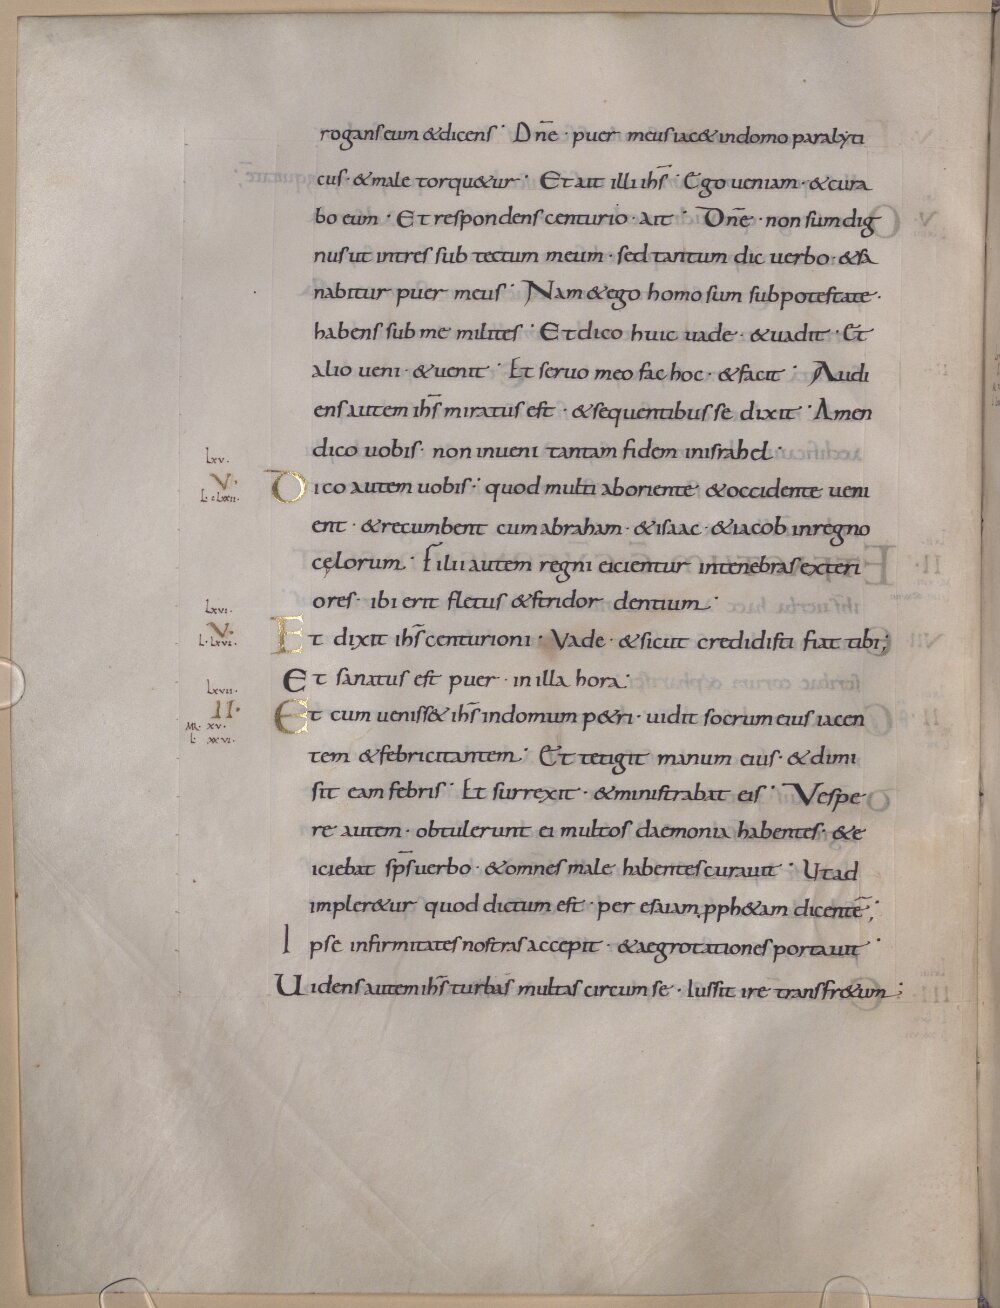 rogans eum &dicens · Dn̄e · puer meus iac& indomo paralyti
cus · &male torqu&ur · Et ait illi ih̄s · Ego ueniam · &cura
bo eum · Et respondens centurio · ait · Dn̄e · non sum dig
nus ut intres sub tectum meum · sed tantum dic uerbo · &sa
nabitur puer meus · Nam &ego homo sum sub potestate ·
habens sub me milites · Et dico huic uade · &uadit · Et
alio ueni · &uenit · Et seruo meo fac hoc · &facit · Audi
ens autem ih̄s miratus est · &sequentibus se dixit · Amen
dico uobis · non inueni tantam fidem inisrahel ·
lxv.
V.
L. clxxii.
Dico autem uobis · quod multi aboriente &occidente ueni
ent · &recumbent cum abraham · &isaac · &iacob inregno
cęlorum · Filii autem regni eicientur intenebras exteri
ores · ibi erit fletus &stridor dentium ·
lxvi.
V.
L. lxvi.
Et dixit ih̄s centurioni · Vade · &sicut credidisti fiat tibi;
Et sanatus est puer · in illa hora ·
lxvii.
II.
MR. xv.
L. xxvi.
Et cum ueniss& ih̄s indomum p&ri · uidit socrum eius iacen
tem &febricitantem · Et tetigit manum eius · &dimi
sit eam febris · Et surrexit · &ministrabat eis · Vespe
re autem · obtulerunt ei multos daemonia habentes · &e
iciebat sp̄s uerbo · &omnes male habentes curauit · Ut ad
impler&ur quod dictum est · per esaiam pph&am dicentē;
Ipse infirmitates nostras accepit · &aegrotationes portauit ·
Uidens autem ih̄s turbas multas circum se · Iussit ire transfr&um;